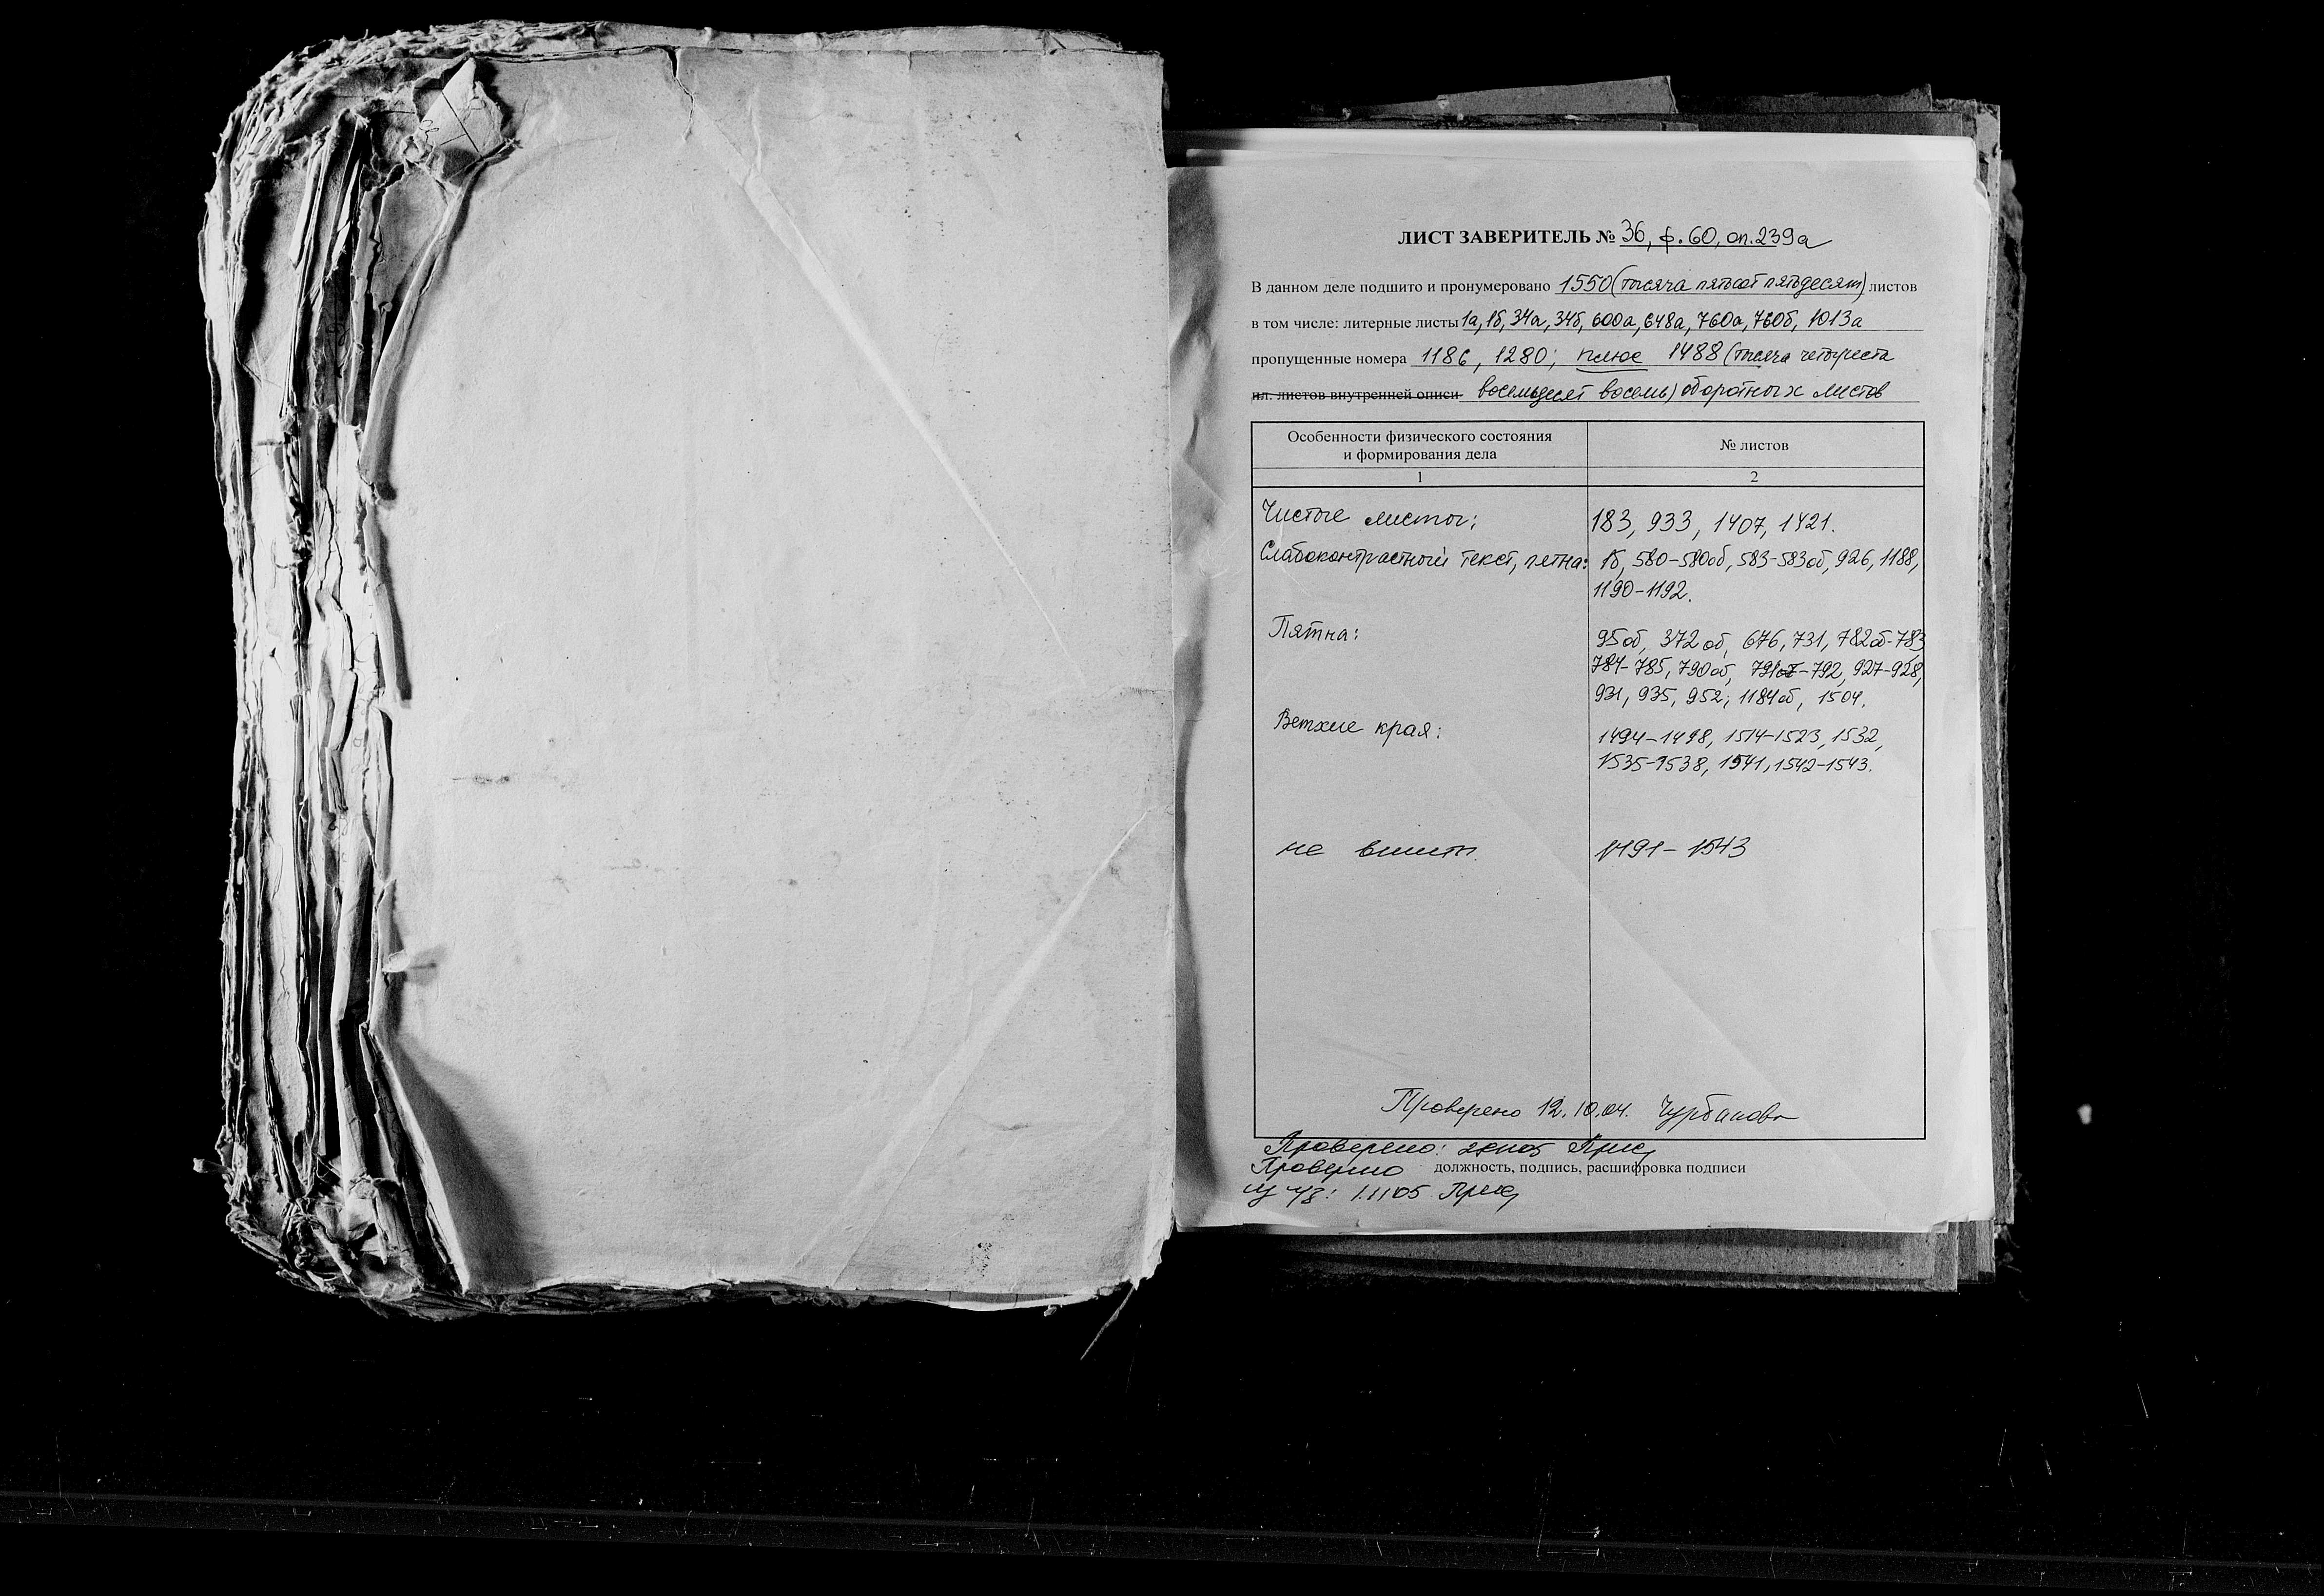 ЛИСТ ЗАВЕРИТЕЛЬ № 36, ф. 60, оп. 239а
В данном деле подшито и пронумеровано 1550 (тысяча пятьсот пятьдесят) листов
в том числе: литерные листы 1а, 1б, 34а, 34б, 600а, 648а, 760а, 760б, 1013а
пропущенные номера 1186, 1280; плюс 1488 (тысяча четыреста
пл. листов внутренней описи восемьдесят восемь) оборотных листов
Особенности физического состояния
и формирования дела
№ листов
1
2
Чистые листы:
183, 933, 1407, 1421.
Слабоконтрастный текст, пятна:
1б, 580-580об, 583-583об, 926, 1188,
1190-1192.
Пятна:
95об, 372об, 676, 731, 782об-783,
784-785, 790об, 791об-792, 927-928,
931, 935, 952, 1184об, 1504.
Ветхие края:
1494-1498, 1514-1523, 1532,
1535-1538, 1541, 1542-1543.
не вшиты
1191-1543
Проверено 12.10.04. Чурбанова
Проверено:
Проверено
должность, подпись, расшифровка подписи
1.11.05